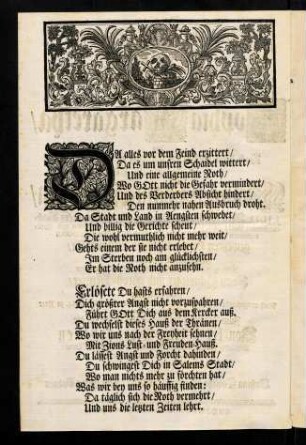 DA alles vor dem Feind erzittert/
Da es um unsren Schaidel wittert/
Und eine allgemeine Noth/
Wo GOtt nicht die Gefahr vermindert/
Und des Verderbers Absicht hindert/
Den nunmehr nahen Ausbruch droht.
Da Stadt und Land in Aengsten schwebet/
Und billig die Gerichte scheut/
Die wohl vermuthlich nicht mehr weit/
Gehts einem der sie nicht erlebet/
Im Sterben noch am glücklichsten/
Er hat die Noth nicht anzusehn.
Erlösete Du hasts erfahren/
Dich größrer Angst nicht vorzusparen/
Führt GOtt Dich aus dem Kercker auß.
Du wechselst dieses Hauß der Thränen/
Wo wir uns nach der Freyheit sehnen/
Mit Zions Lust- und Freuden-Hauß.
Du lässest Angst und Forcht dahinden/
Du schwingest Dich in Salems Stadt/
Wo man nichts mehr zu förchten hat/
Was wir bey uns so häuffig finden:
Da täglich sich die Noth vermehrt/
Und uns die letzten Zeiten lehrt.